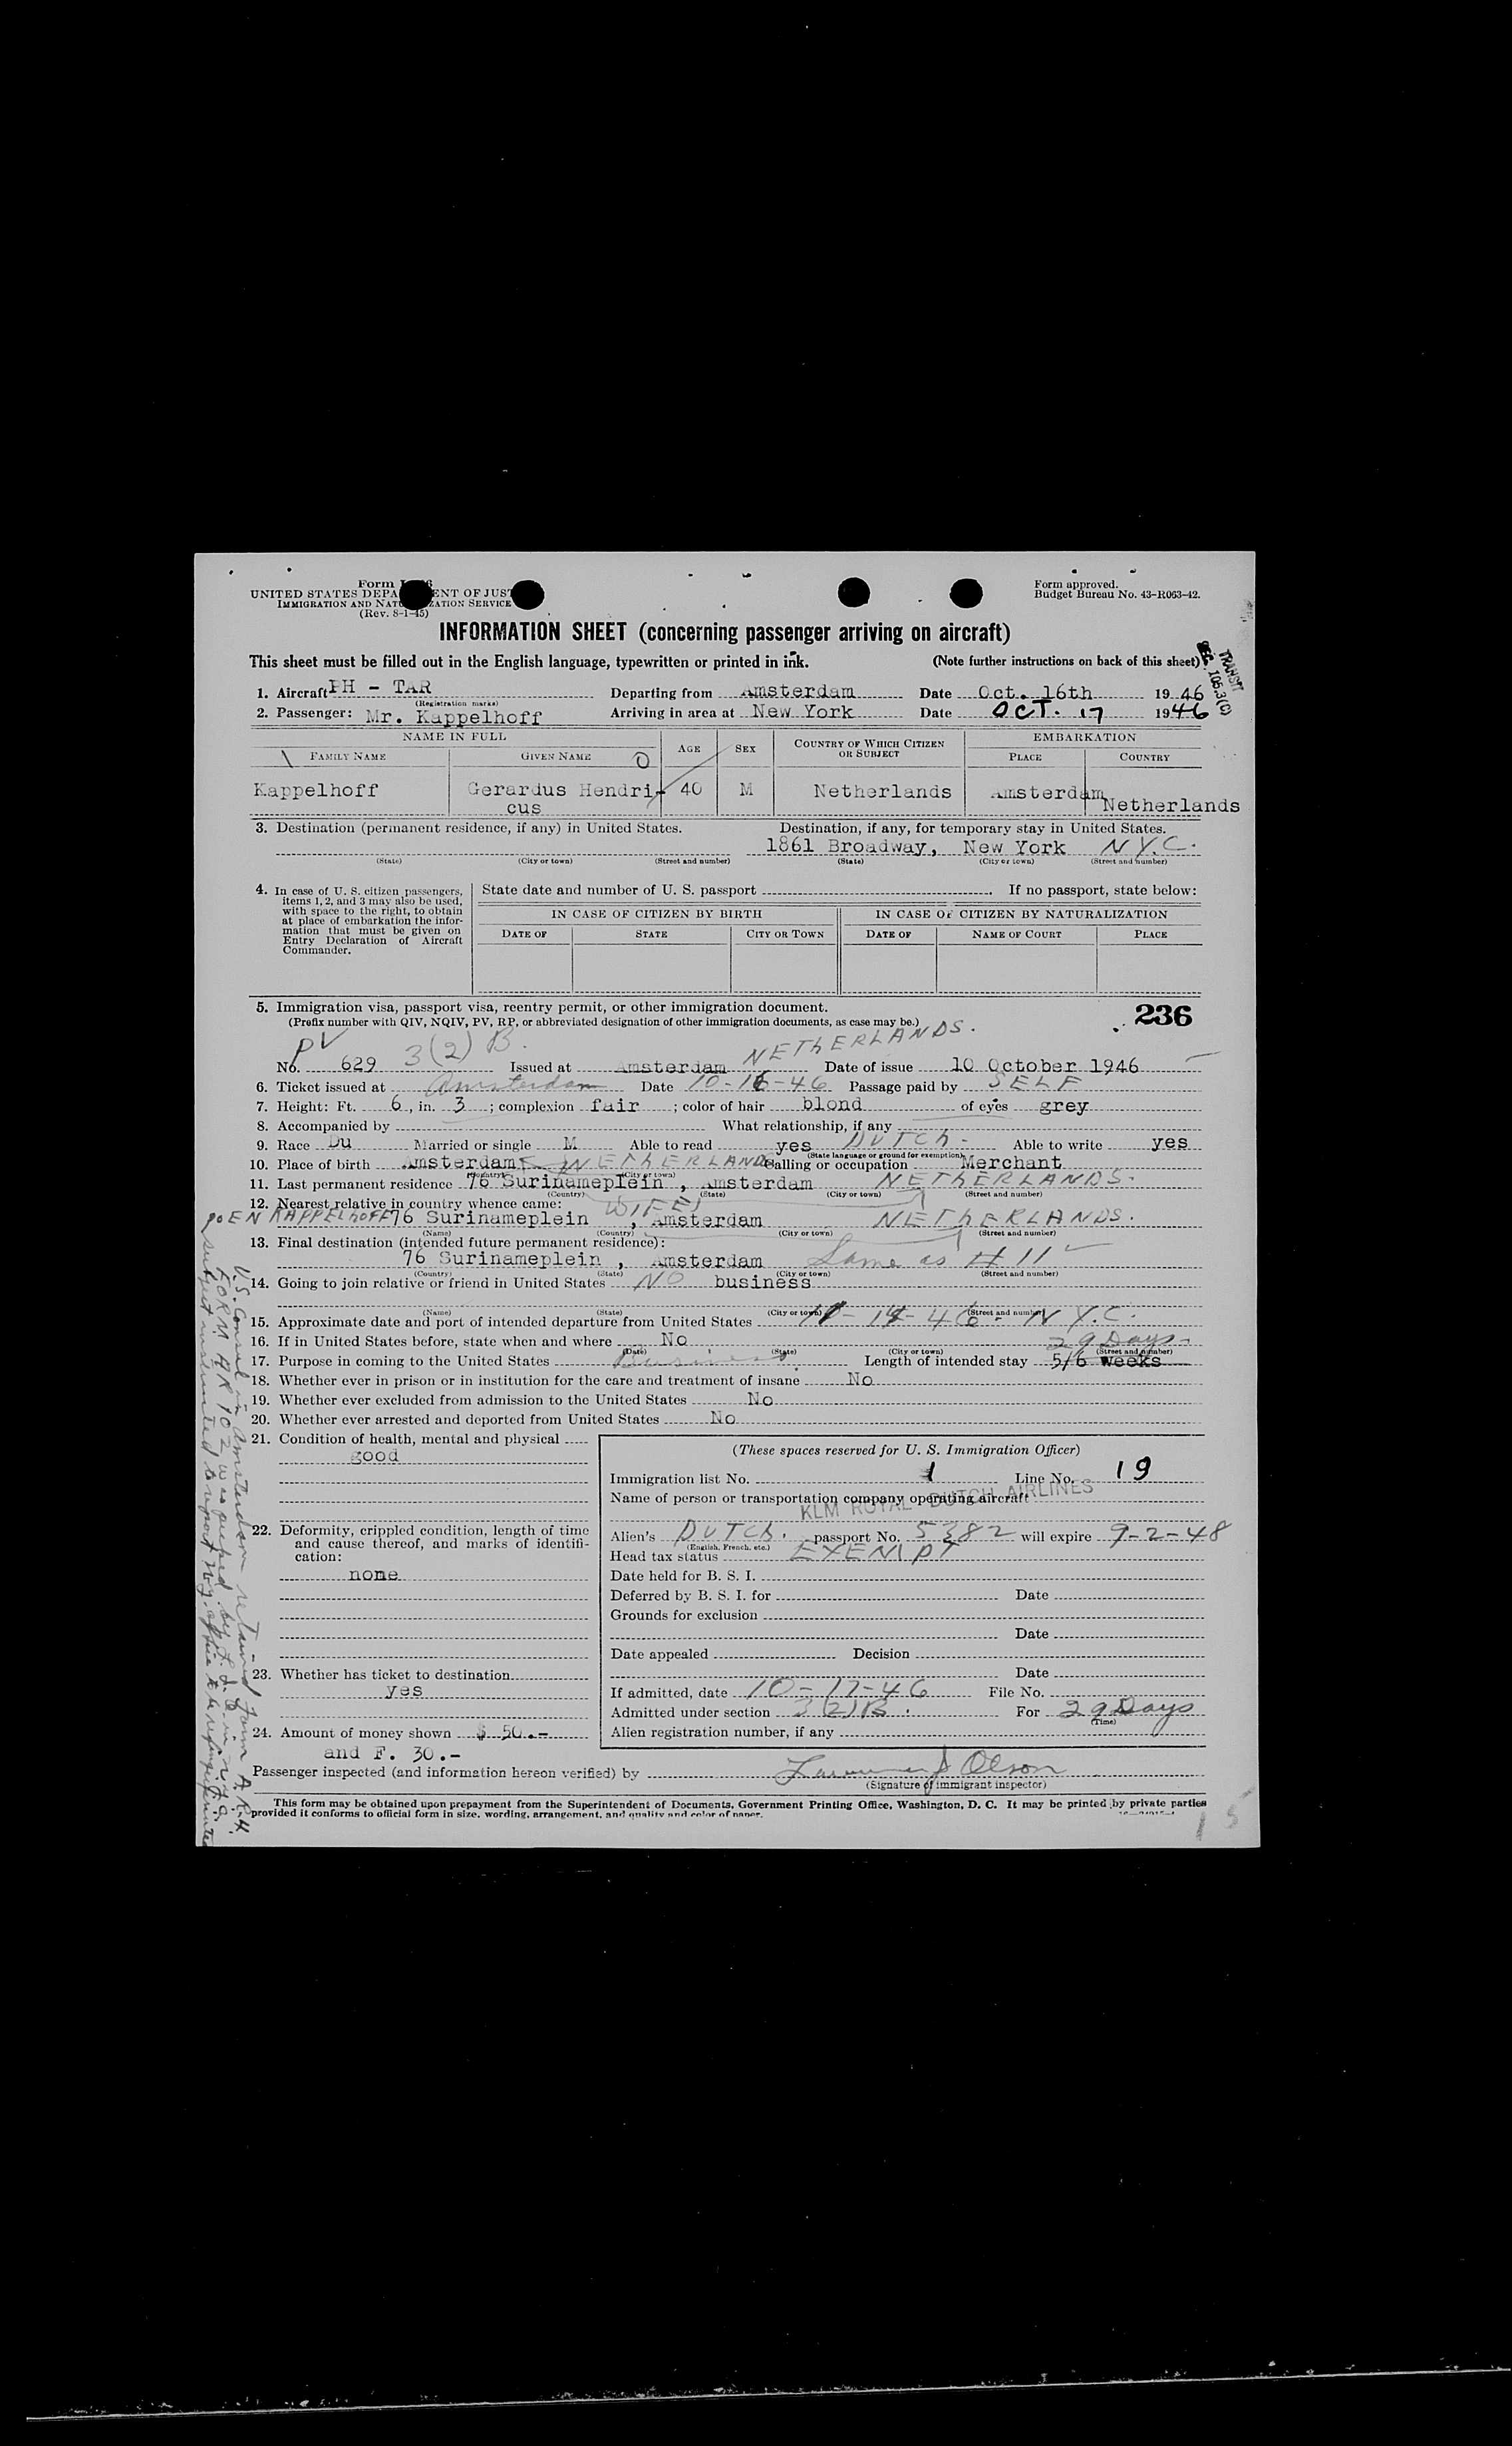 Form
UNITED STATES DEPA ENT OF JUST
IMMIGRATION AND NATU ZATION SERVICE
(Rev. 8-1-45)
Form approved.
Budget Bureau No. 43-R063-42.
INFORMATION SHEET (concerning passenger arriving on aircraft)
This sheet must be filled out in the English language, typewritten or printed in ink. (Note further instructions on back of this sheet)
TRANSIT
SEC. 105.3(C)
1. Aircraft PH - TAR Departing from Amsterdam Date Oct. 16th 1946
(Registration marks)
2. Passenger: Mr. Kappelhoff Arriving in area at New York Date OCT. 17 1946
NAME IN FULL AGE SEX COUNTRY OF WHICH CITIZEN OR SUBJECT EMBARKATION
FAMILY NAME GIVEN NAME PLACE COUNTRY
Kappelhoff Gerardus Hendri- 40 M Netherlands Amsterdam Netherlands
cus
3. Destination (permanent residence, if any) in United States. Destination, if any, for temporary stay in United States.
1861 Broadway, New York N.Y.C.
(State) (City or town) (Street and number) (State) (City or town) (Street and number)
4. In case of U. S. citizen passengers, items 1, 2, and 3 may also be used, with space to the right, to obtain at place of embarkation the information that must be given on Entry Declaration of Aircraft Commander.
State date and number of U. S. passport . If no passport, state below:
IN CASE OF CITIZEN BY BIRTH IN CASE OF CITIZEN BY NATURALIZATION
DATE OF STATE CITY OR TOWN DATE OF NAME OF COURT PLACE
5. Immigration visa, passport visa, reentry permit, or other immigration document. 236
(Prefix number with QIV, NQIV, PV, RP, or abbreviated designation of other immigration documents, as case may be.)
PV 3(2) B. NETHERLANDS.
No. 629 Issued at Amsterdam Date of issue 10 October 1946
6. Ticket issued at Amsterdam Date 10-16-46 Passage paid by SELF
7. Height: Ft. 6, in. 3; complexion fair; color of hair blond of eyes grey
8. Accompanied by What relationship, if any
9. Race Du Married or single M Able to read yes DUTCH - Able to write yes
(State language or ground for exemption)
10. Place of birth Amsterdam NETHERLANDS Calling or occupation Merchant
(Country) (City or town)
11. Last permanent residence 76 Surinameplein, Amsterdam NETHERLANDS.
(Country) (State) (City or town) (Street and number)
12. Nearest relative in country whence came: WIFE
KAPPELHOFF 76 Surinameplein, Amsterdam NETHERLANDS.
(Name) (Country) (City or town) (Street and number)
13. Final destination (intended future permanent residence):
76 Surinameplein, Amsterdam Same as # 11
(Country) (State) (City or town) (Street and number)
14. Going to join relative or friend in United States NO business
(Name) (State) (City or town) (Street and number)
15. Approximate date and port of intended departure from United States 11-14-46 - N.Y.C.
16. If in United States before, state when and where No
(Date) (State) (City or town) (Street and number)
29 Days
17. Purpose in coming to the United States Business Length of intended stay 5/6 weeks
18. Whether ever in prison or in institution for the care and treatment of insane No
19. Whether ever excluded from admission to the United States No
20. Whether ever arrested and deported from United States No
21. Condition of health, mental and physical
good
22. Deformity, crippled condition, length of time and cause thereof, and marks of identification:
none
23. Whether has ticket to destination
yes
24. Amount of money shown $ 50.-
and F. 30.-
(These spaces reserved for U. S. Immigration Officer)
Immigration list No. 1 Line No. 19
Name of person or transportation company operating aircraft
KLM ROYAL DUTCH AIRLINES
Alien's DUTCH. passport No. 5382 will expire 9-2-48
(English, French, etc.)
Head tax status EXEMPT
Date held for B. S. I.
Deferred by B. S. I. for Date
Grounds for exclusion
Date
Date appealed Decision
Date
If admitted, date 10-17-46 File No.
Admitted under section 3(2)B. For 29 Days
(Time)
Alien registration number, if any
Passenger inspected (and information hereon verified) by Olson
(Signature of immigrant inspector)
This form may be obtained upon prepayment from the Superintendent of Documents, Government Printing Office, Washington, D. C. It may be printed by private parties
provided it conforms to official form in size, wording, arrangement, and quality and color of paper.
15
U.S. Consul in Amsterdam retained form AR-4
FORM AR 102 was
subject instructed to report N.Y. office